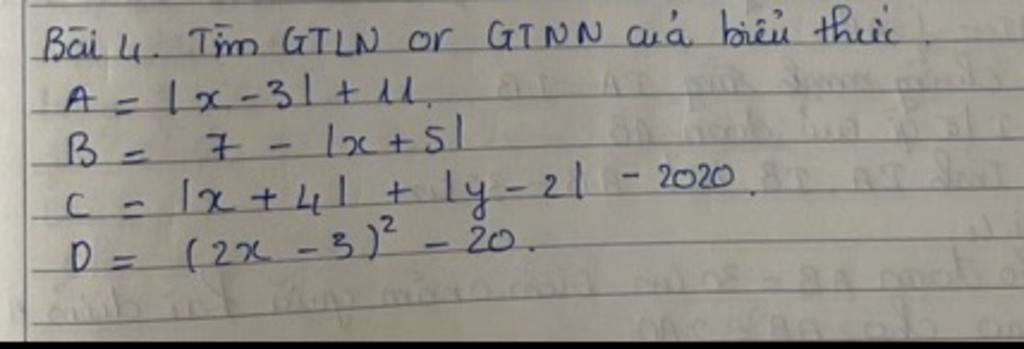 Bài 4. Tìm GTLN or GTNN của biểu thức.
A = |x - 3| + 11.
B = 7 - |x + 5|
C = |x + 4| + |y - 2| - 2020.
D = (2x - 3)² - 20.